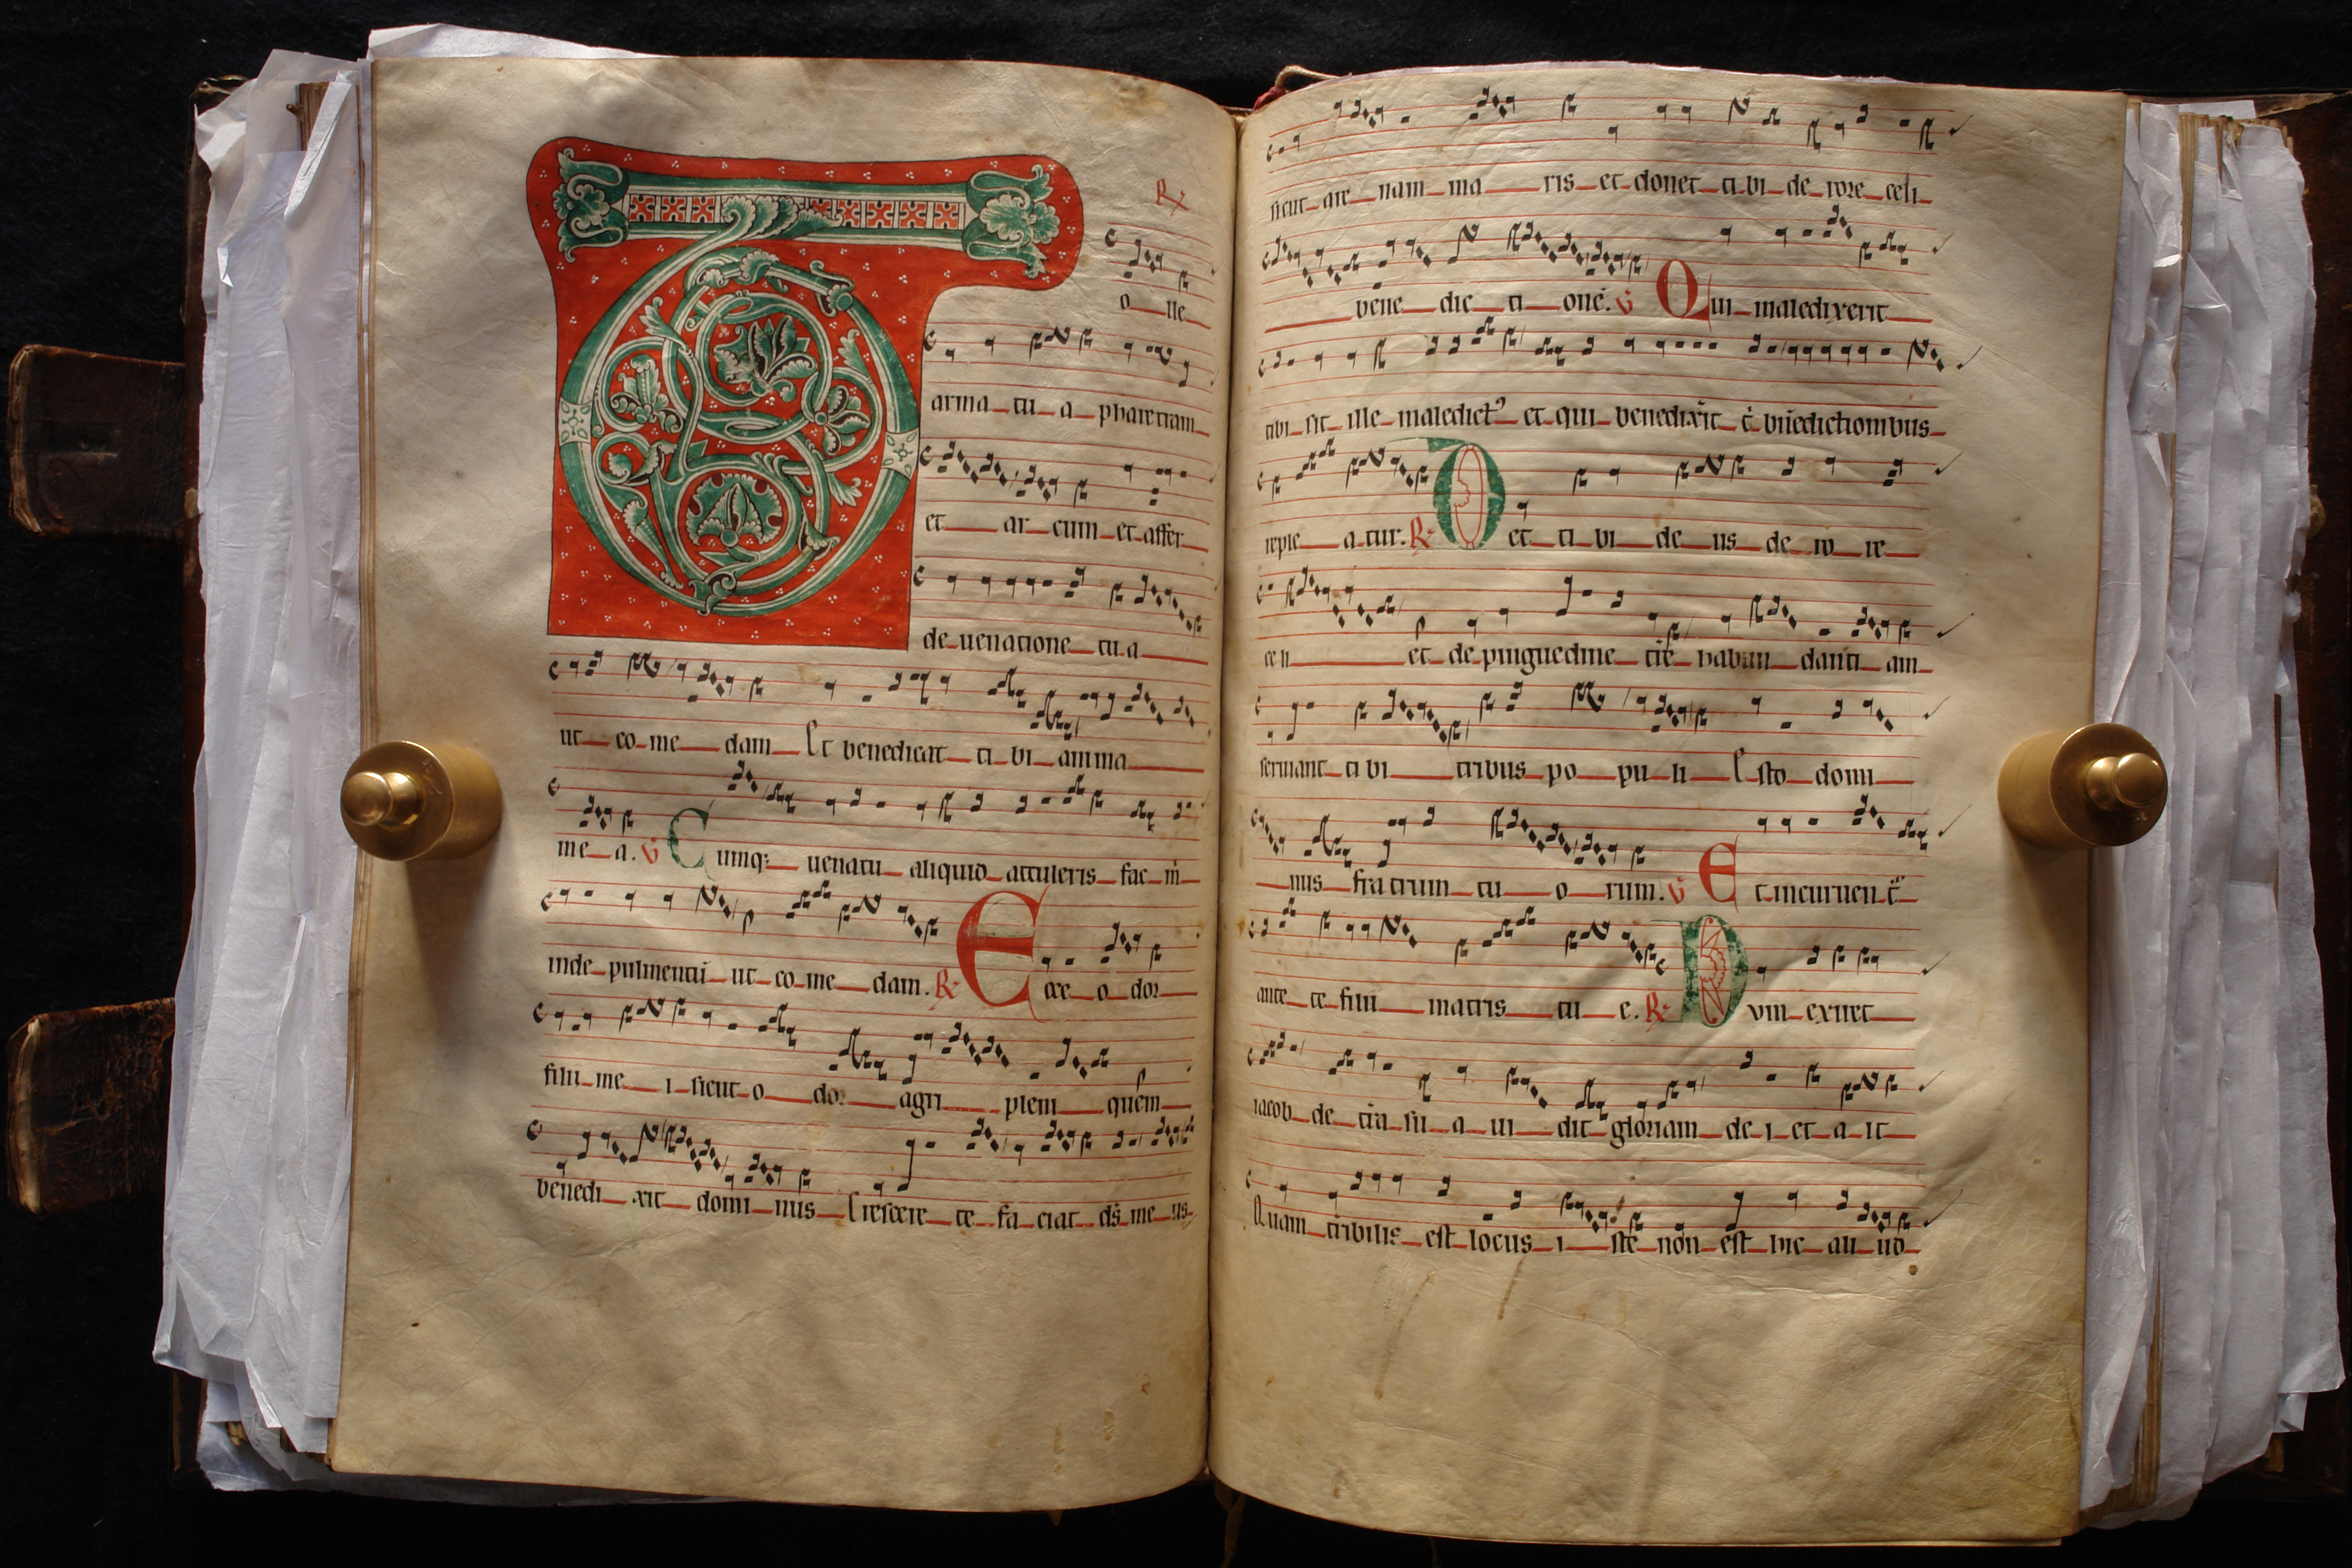 T
R
o lle
arma tu a pharetram
et ar cum et affer
de uenatione tu a
ut co me dam Et benedicat ti bi anima
me a. V Cumq; uenatu aliquid attuleris fac m̄
inde pulmentū ut co me dam. R Ecce o dor
filii me i sicut o dor agri pleni quem
benedi xit domi nus Crescere te fa ciat d̄s me us
sicut are nam ma ris et donet ti bi de rore celi
bene dic ti one. V Qui maledixerit
tibi sit ille maledictꝰ et qui benedix̄it t̄ bn̄edictionibus
reple a tur. R Det ti bi de us de ro re
ce li et de pinguedine tr̄e habun danti am
seruiant ti bi tribus po pu li Esto domi
nus fratrum tu o rum. V Et incuruen t̄
ante te filii matris tu e. R Dum exiret
iacob de tr̄a su a ui dit gloriam de i et a it
Quam tr̄ibilis est locus i ste non est hic ali ud